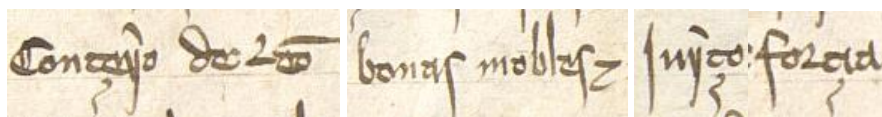 Conçeyo de bonas mobles Juyço forçia